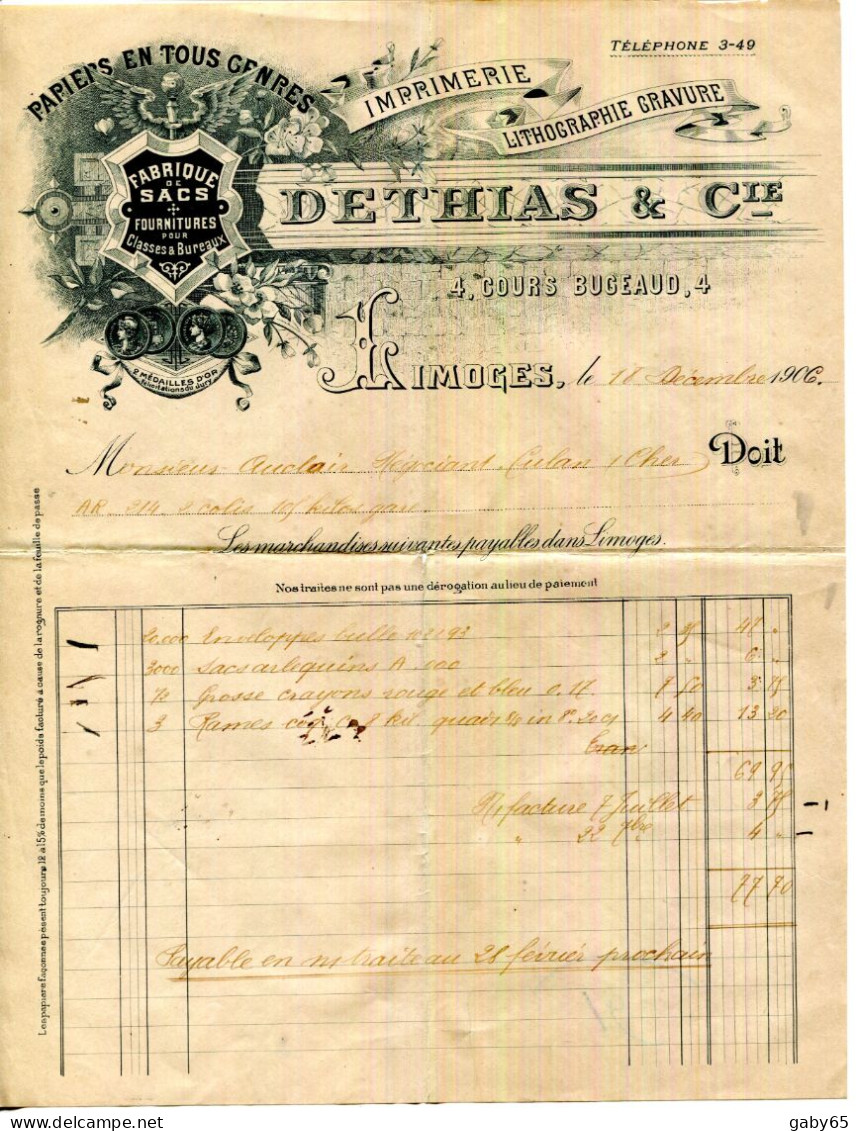 TÉLÉPHONE 3-49
PAPIERS EN TOUS GENRES
IMPRIMERIE
LITHOGRAPHIE GRAVURE
FABRIQUE
DE
SACS
FOURNITURES
POUR
Classes & Bureaux
DETHIAS & CIE
4, COURS BUGEAUD, 4
2 MÉDAILLES D'OR
Félicitations du Jury
LIMOGES, le 18 Décembre 1906.
Monsieur Auclair Négociant Culan (Cher) Doit
AR 314 2 colis 109 kilos gare
Les marchandises suivantes payables dans Limoges.
Nos traites ne sont pas une dérogation au lieu de paiement
Les papiers façonnés pèsent toujours 12 à 15% de moins que le poids facturé à cause de la rognure et de la feuille de passe
20.000 Enveloppes bulle 2 47 "
3000 Sacs arlequins A 000 2 " 6 "
Grosse crayons rouge et bleu 7 50 3 75
3 Rames 8 kil 4 40 13 20
69 95
N/ facture 7 Juillet 3 75
" 22 7bre 4 "
77 70
Payable en n/ traite au 28 février prochain
gaby65